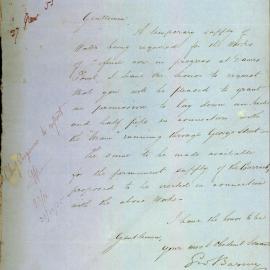 Gentlemen
A temporary supply of
Water being required for the Works
of Defence now in progress at Dawes
Point, I have the honor to request
that you will be pleased to grant
me permission to lay down an inch
and half pipe in connection with
the "Main" running through George Street
The same to be made available
for the permanent supply of the Barracks
proposed to be erected in connection
with the above Works.
I have the honor to be
Gentlemen,
Your most Obedient Servant
Geo Barney